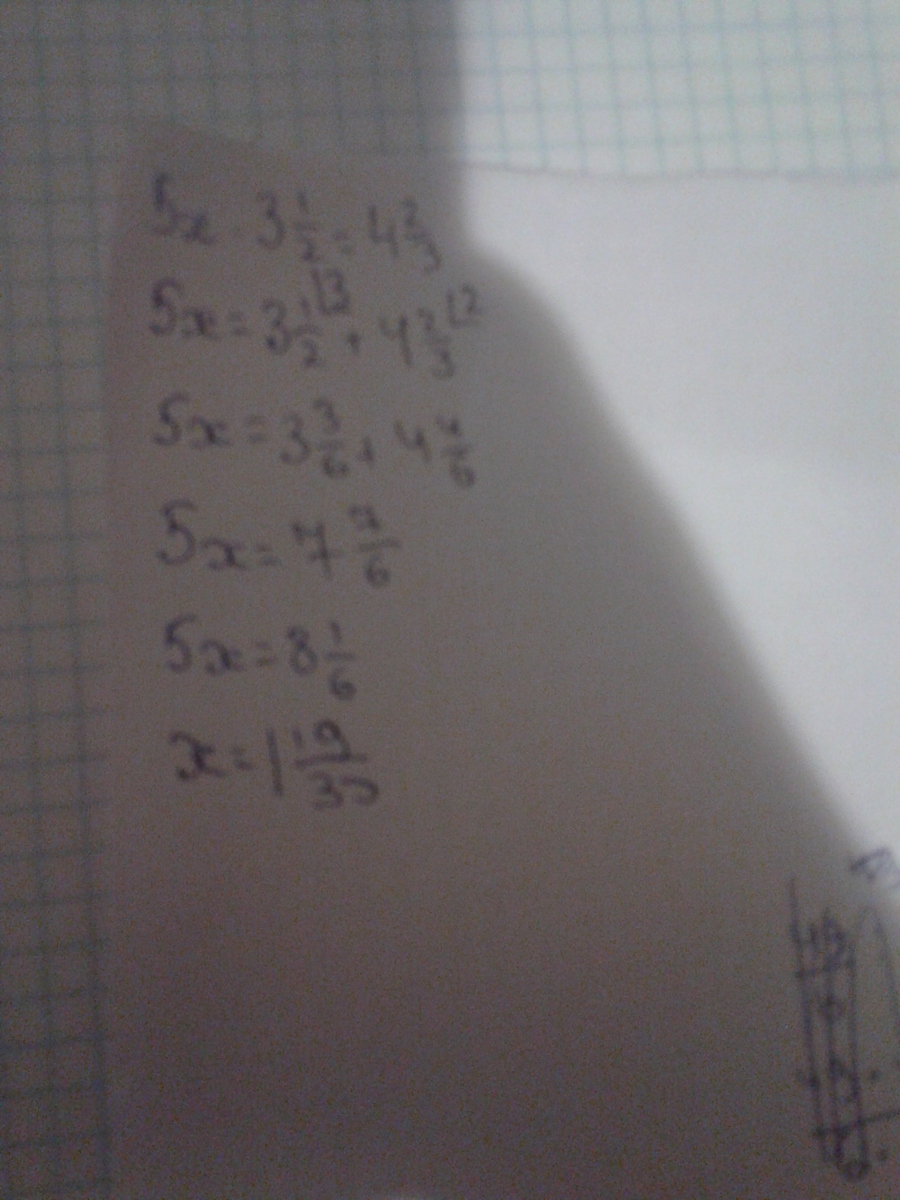 5x - 3 1/2 = 4 2/3
5x = 3 1/2 |3 + 4 2/3 |2
5x = 3 3/6 + 4 4/6
5x = 7 7/6
5x = 8 1/6
x = 1 19/30